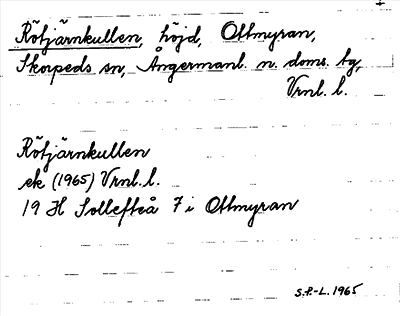 Rötjärnkullen, höjd, Ottmyran,
Skorpeds sn, Ångermanl. n. doms. tg,
Vrnl. l.
Rötjärnkullen
ek (1965) Vrnl. l.
19 H Sollefteå 7 i Ottmyran
S.P.-L. 1965